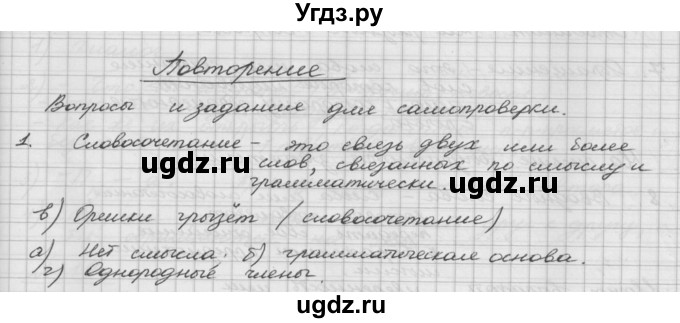 Угдз.ру
Повторение
Вопросы и задание для самопроверки.
1. Словосочетание – это связь двух или более
слов, связанных по смыслу и
грамматически.
в) Орешки грызёт (словосочетание)
а) Нет смысла. б) грамматическая основа.
г) Однородные члены.
©ugdz.ru
©ugdz.ru
©ugdz.ru
ugdz.ru